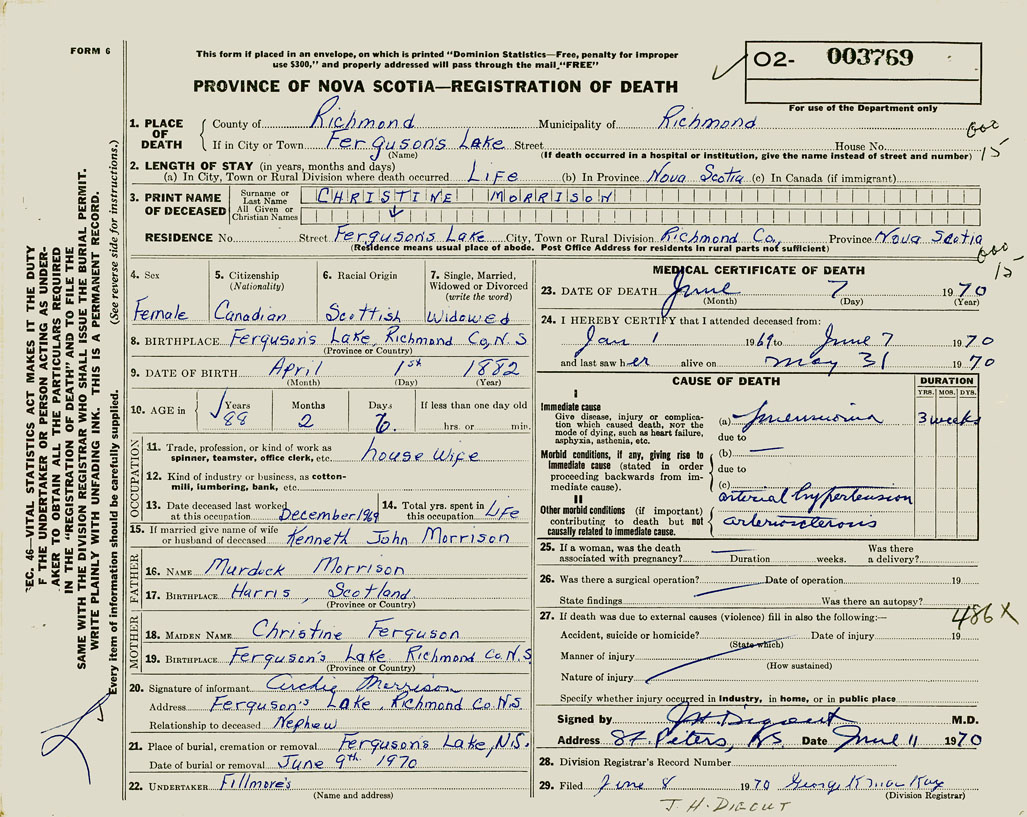 FORM 6
This form if placed in an envelope, on which is printed "Dominion Statistics—Free, penalty for improper
use $300," and properly addressed will pass through the mail "FREE"
O2- 003769
PROVINCE OF NOVA SCOTIA—REGISTRATION OF DEATH
For use of the Department only
1. PLACE OF DEATH
County of Richmond Municipality of Richmond
If in City or Town Ferguson's Lake Street House No.
(Name) (If death occurred in a hospital or institution, give the name instead of street and number)
15
2. LENGTH OF STAY (in years, months and days)
(a) In City, Town or Rural Division where death occurred Life (b) In Province Nova Scotia (c) In Canada (if immigrant)
3. PRINT NAME OF DECEASED
Surname or Last Name CHRISTINE MORRISON
All Given or Christian Names
RESIDENCE No. Street Ferguson's Lake City, Town or Rural Division Richmond Co., Province Nova Scotia
(Residence means usual place of abode. Post Office Address for residents in rural parts not sufficient)
15
4. Sex
Female
5. Citizenship
(Nationality)
Canadian
6. Racial Origin
Scottish
7. Single, Married,
Widowed or Divorced
(write the word)
Widowed
8. BIRTHPLACE Ferguson's Lake, Richmond Co, N.S
(Province or Country)
9. DATE OF BIRTH April 1st 1882
(Month) (Day) (Year)
10. AGE in Years Months Days If less than one day old
88 2 6. hrs. or min.
OCCUPATION
11. Trade, profession, or kind of work as
spinner, teamster, office clerk, etc. house wife
12. Kind of industry or business, as cotton-
mill, lumbering, bank, etc.
13. Date deceased last worked
at this occupation December 1969
14. Total yrs. spent in
this occupation Life
15. If married give name of wife
or husband of deceased Kenneth John Morrison
FATHER
16. NAME Murdock Morrison
17. BIRTHPLACE Harris, Scotland
(Province or Country)
MOTHER
18. MAIDEN NAME Christine Ferguson
19. BIRTHPLACE Ferguson's Lake Richmond Co. N.S
(Province or Country)
20. Signature of informant Archie Morrison
Address Ferguson's Lake, Richmond Co. N.S.
Relationship to deceased Nephew
21. Place of burial, cremation or removal Ferguson's Lake, N.S.
Date of burial or removal June 9th 1970
22. UNDERTAKER Fillmore's
(Name and address)
MEDICAL CERTIFICATE OF DEATH
23. DATE OF DEATH June 7 1970
(Month) (Day) (Year)
24. I HEREBY CERTIFY that I attended deceased from:
Jan 1 1969 to June 7 1970
and last saw her alive on May 31 1970
CAUSE OF DEATH
DURATION
YRS. MOS. DYS.
I
Immediate cause
Give disease, injury or complica-
tion which caused death, NOT the
mode of dying, such as heart failure,
asphyxia, asthenia, etc.
(a) Pneumonia 3 weeks
due to
Morbid conditions, if any, giving rise to
immediate cause (stated in order
proceeding backwards from im-
mediate cause).
(b)
due to
(c)
II
Other morbid conditions (if important)
contributing to death but not
causally related to immediate cause.
arterial hypertension
arteriosclerosis
25. If a woman, was the death
associated with pregnancy? Duration weeks. Was there
a delivery?
26. Was there a surgical operation? Date of operation 19
State findings Was there an autopsy?
27. If death was due to external causes (violence) fill in also the following:—
486X
Accident, suicide or homicide? Date of injury 19
(State which)
Manner of injury
(How sustained)
Nature of injury
Specify whether injury occurred in industry, in home, or in public place
Signed by J H Digout M.D.
Address St. Peters, NS Date June 11 1970
28. Division Registrar's Record Number
29. Filed June 8 1970 George
(Division Registrar)
J. H. DIGOUT
SEC. 46—VITAL STATISTICS ACT MAKES IT THE DUTY
OF THE UNDERTAKER OR PERSON ACTING AS UNDER-
TAKER TO OBTAIN ALL THE PARTICULARS REQUIRED
IN THE "REGISTRATION OF DEATH" AND TO FILE THE
SAME WITH THE DIVISION REGISTRAR WHO SHALL ISSUE THE BURIAL PERMIT.
WRITE PLAINLY WITH UNFADING INK. THIS IS A PERMANENT RECORD.
Every item of information should be carefully supplied. (See reverse side for instructions.)